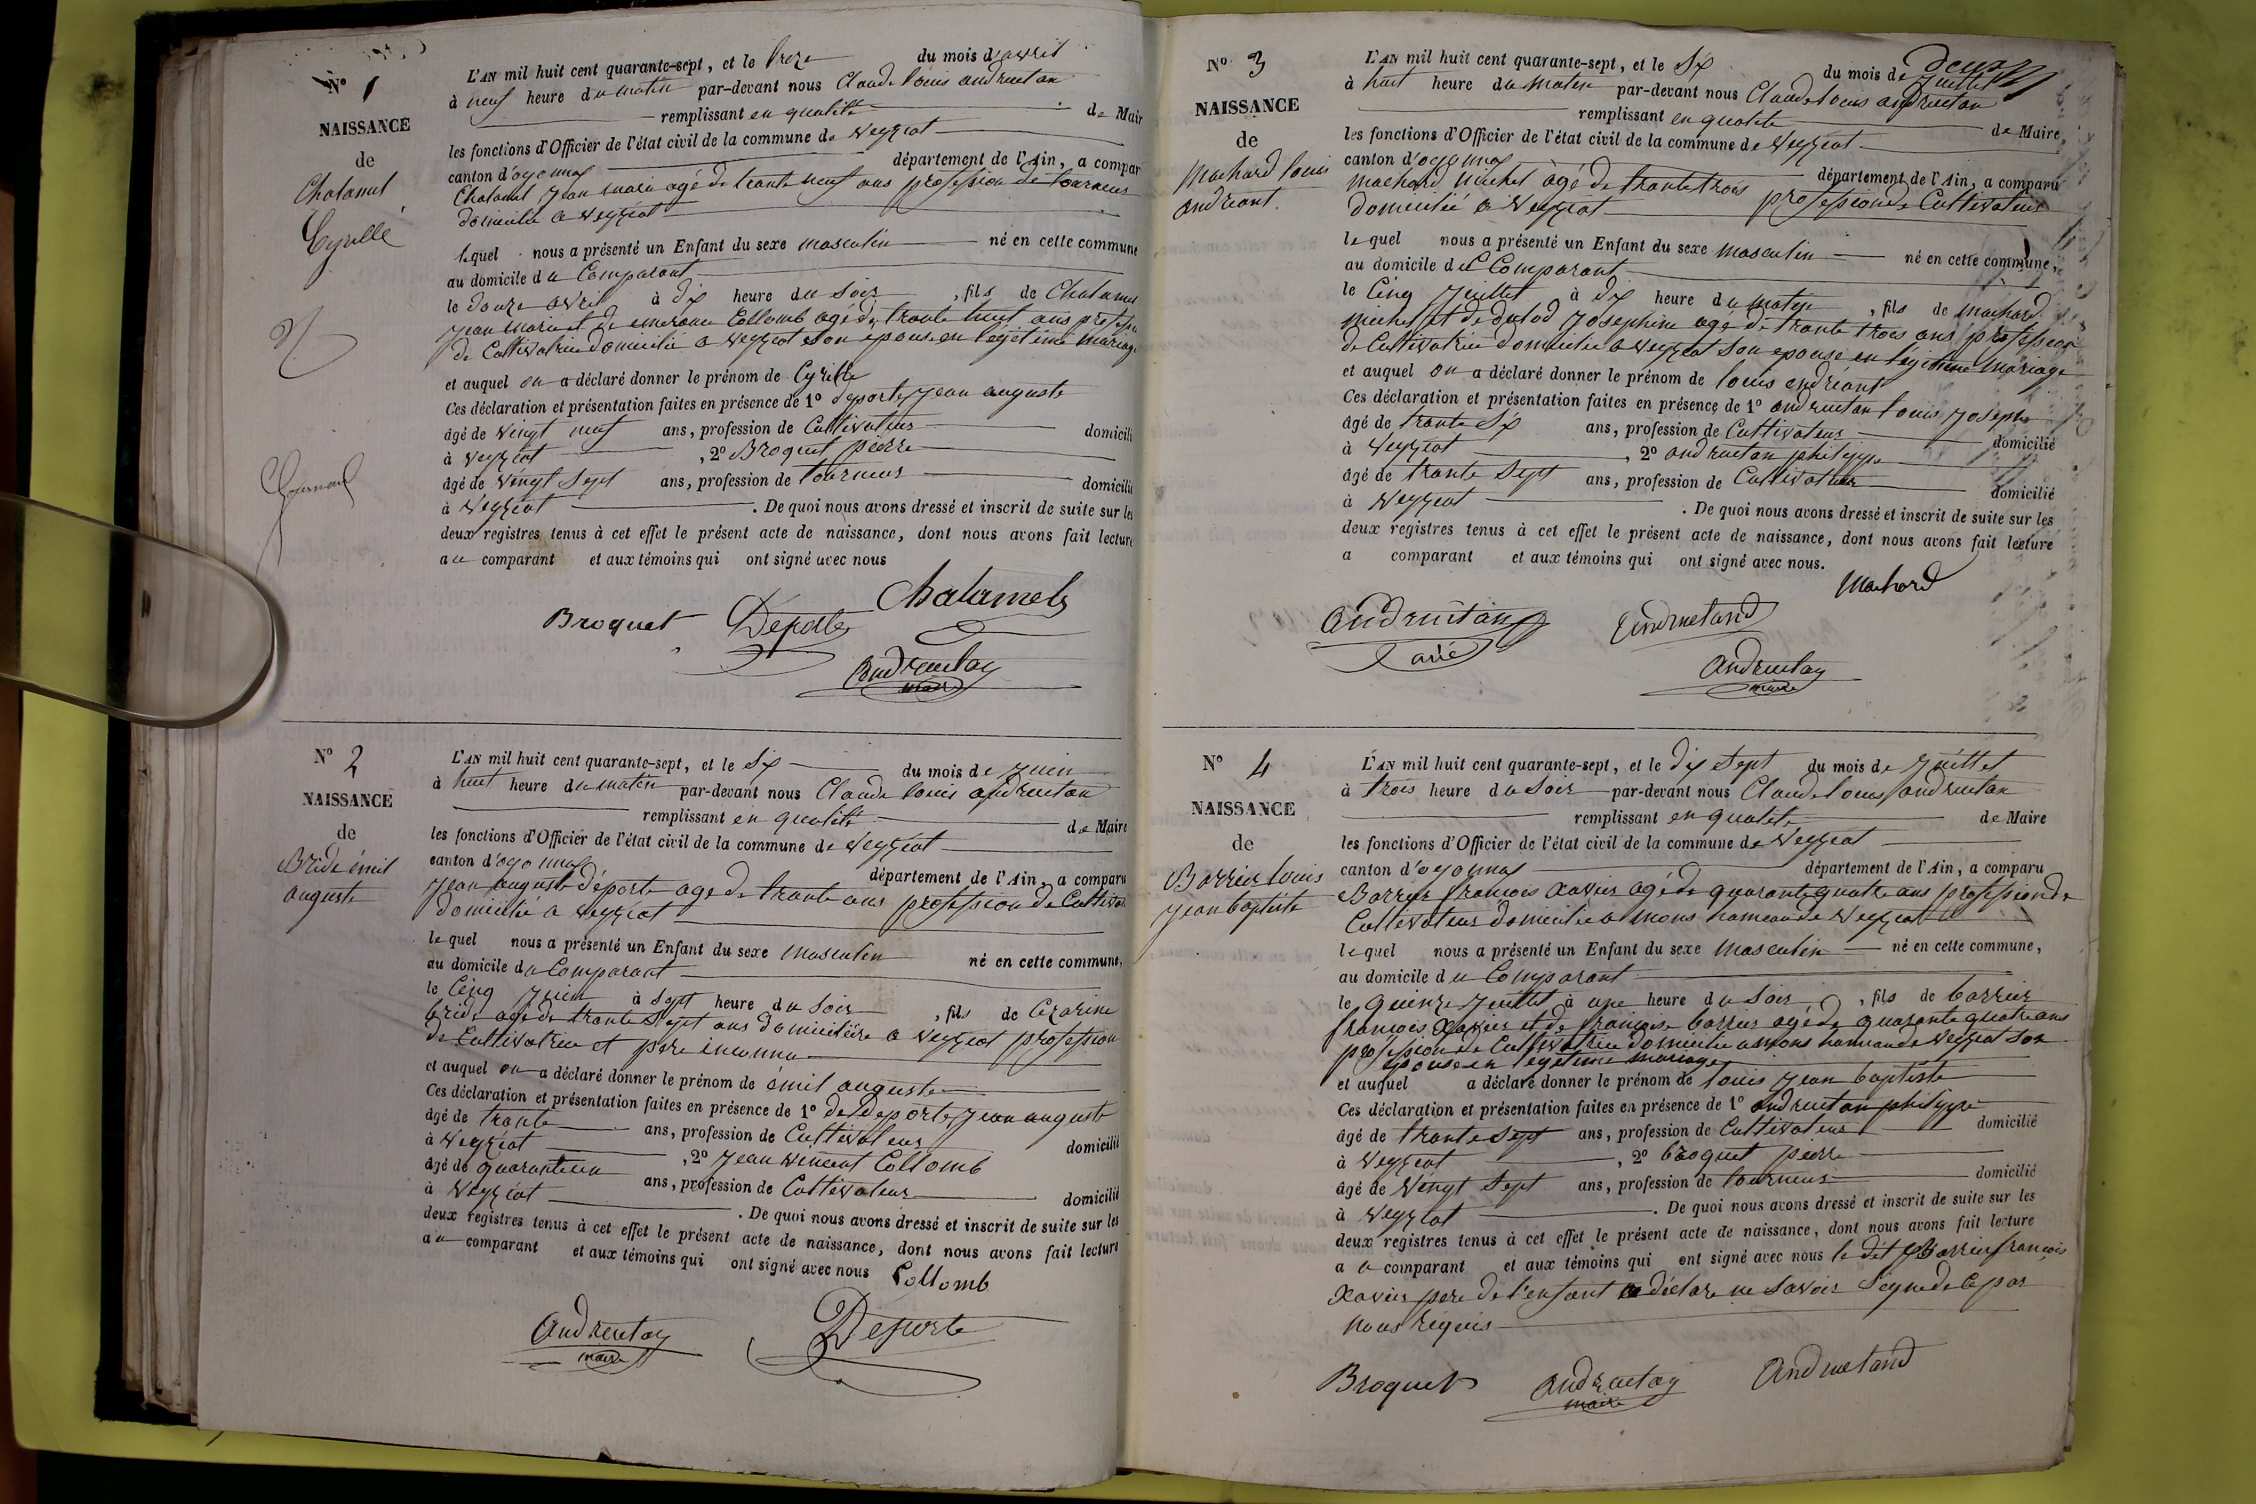 N° 1
NAISSANCE
de
Chatamel
Cyrille
L'AN mil huit cent quarante-sept, et le treze du mois d'avril
à neuf heure du matin par-devant nous Claude louis andruetan
remplissant en qualité de Mair
les fonctions d'Officier de l'état civil de la commune de veyziat
canton d'oyonnax département de l'Ain, a compar
Chatamel jean marie agé de trante neuf ans profession de tourneur
domicilié a veyziat
lequel nous a présenté un Enfant du sexe masculin né en cette commune
au domicile du Comparant
le douze avril à dix heure du soir, fils de Chatamel
jean marie et de Collomb agé de trante huit ans professi
de Cultivatrice domicilié a veyziat son épouse en légitime mariage
et auquel on a déclaré donner le prénom de Cyrille
Ces déclaration et présentation faites en présence de 1° deporte jean auguste
âgé de vingt neuf ans, profession de Cultivateur domicili
à veyziat, 2° Broquet pierre
âgé de vingt sept ans, profession de tourneur domicilié
à veyziat. De quoi nous avons dressé et inscrit de suite sur les
deux registres tenus à cet effet le présent acte de naissance, dont nous avons fait lecture
au comparant et aux témoins qui ont signé avec nous
Chatamel
Broquet Deporte
andruetan
maire
N° 2
NAISSANCE
de
Bride émil
auguste
L'AN mil huit cent quarante-sept, et le six du mois de juin
à huit heure du matin par-devant nous Claude louis andruetan
remplissant en qualité de Maire
les fonctions d'Officier de l'état civil de la commune de veyziat
canton d'oyonnax département de l'Ain, a comparu
jean auguste déporte age de trante ans profession de Cultivat
domicilié a veyziat
lequel nous a présenté un Enfant du sexe masculin né en cette commune,
au domicile du Comparant
le Cinq juin à sept heure du soir, fils de Cezarine
bride agé de trante sept ans domicilière a veyziat profession
de Cultivatrice et père inconnu
et auquel on a déclaré donner le prénom de émil auguste
Ces déclaration et présentation faites en présence de 1° de deporte jean auguste
âgé de trante ans, profession de Cultivateur domicilié
à veyziat, 2° jean vincent Collomb
âgé de quarante un ans, profession de Cultivateur domicilié
à veyziat. De quoi nous avons dressé et inscrit de suite sur les
deux registres tenus à cet effet le présent acte de naissance, dont nous avons fait lecture
au comparant et aux témoins qui ont signé avec nous Collomb
andruetan Deporte
maire
deux
N° 3
NAISSANCE
de
Machard louis
andréant
L'AN mil huit cent quarante-sept, et le six du mois de juillet
à huit heure du matin par-devant nous Claude louis andruetan
remplissant en qualité de Maire
les fonctions d'Officier de l'état civil de la commune de veyziat
canton d'oyonnax département de l'Ain, a comparu
machard michel agé de trante trois profession de Cultivateur
domicilié a veyziat
lequel nous a présenté un Enfant du sexe masculin né en cette commune,
au domicile de Comparant
le Cinq juillet à dix heure du matin, fils de machard
michel et de josephine agé de trante trois ans profession
de Cultivatrice domicilié a veyziat son epouse en legitime mariage
et auquel on a déclaré donner le prénom de louis andréant
Ces déclaration et présentation faites en présence de 1° andruetan louis joseph
âgé de trante six ans, profession de Cultivateur domicilié
à veyziat, 2° andruetan philippe
âgé de trante sept ans, profession de Cultivateur domicilié
à veyziat. De quoi nous avons dressé et inscrit de suite sur les
deux registres tenus à cet effet le présent acte de naissance, dont nous avons fait lecture
a comparant et aux témoins qui ont signé avec nous.
Machard
andruetan andruetand
andruetan
maire
N° 4
NAISSANCE
de
Borrier louis
jean baptiste
L'AN mil huit cent quarante-sept, et le dix sept du mois de juillet
à trois heure du soir par-devant nous Claude louis andruetan
remplissant en qualité de Maire
les fonctions d'Officier de l'état civil de la commune de veyziat
canton d'oyonnax département de l'Ain, a comparu
Borrier francois xavier agé de quarante quatre ans profession de
Cultivateur domicilié a mons hameau de veyziat
lequel nous a présenté un Enfant du sexe masculin né en cette commune,
au domicile du Comparant
le quinze juillet à une heure du soir, fils de borrier
francois xavier et de françoise borrier agé de quarante quatre ans
profession de Cultivatrice domicilié a mons hameau de veyziat son
epouse en legitime mariage
et auquel a déclaré donner le prénom de louis jean baptiste
Ces déclaration et présentation faites en présence de 1° andruetan philippe
âgé de trante sept ans, profession de Cultivateur domicilié
à veyziat, 2° broquet pierre
âgé de vingt sept ans, profession de tourneur domicilié
à veyziat. De quoi nous avons dressé et inscrit de suite sur les
deux registres tenus à cet effet le présent acte de naissance, dont nous avons fait lecture
au comparant et aux témoins qui ont signé avec nous le dit Borrier françois
xavier pere de l'enfant a déclare ne savoir signe de ce par
nous requis
Broquet andruetan andruetand
maire